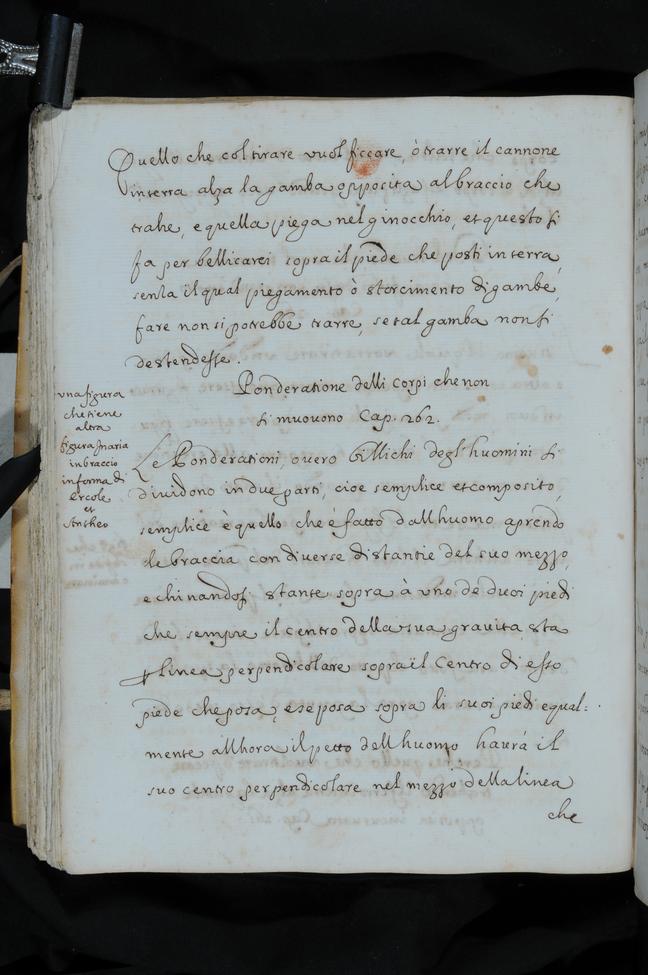 Quello che col tirare vuol ficcare, ò trarre il cannone
in terra alza la gamba opposita al braccio che
trahe, e quella piega nel ginocchio, et questo si
fa per bellicarci sopra il piede che posti in terra,
senza il qual piegamento ò storcimento di gambe,
fare non si potrebbe trarre, se tal gamba non si
destendesse.
Ponderatione delli corpi che non
si muovono Cap. 262.
Le Ponderationi, overo billichi degl'huomini si
dividono in due parti, cioe semplice et composito,
semplice è quello che è fatto dall huomo aprendo
le braccia con diverse distantie del suo mezzo,
e chinandosi stante sopra à uno de duoi piedi
che sempre il centro della sua gravita sta
p linea perpendicolare sopra il Centro di esso
piede che posa, e se posa sopra li suoi piedi equal:
mente allhora il petto dell huomo haurà il
suo centro perpendicolare nel mezzo della linea
che
una figura
che tiene
altra
figura in aria
in braccio
in forma di
Ercole
et
Antheo